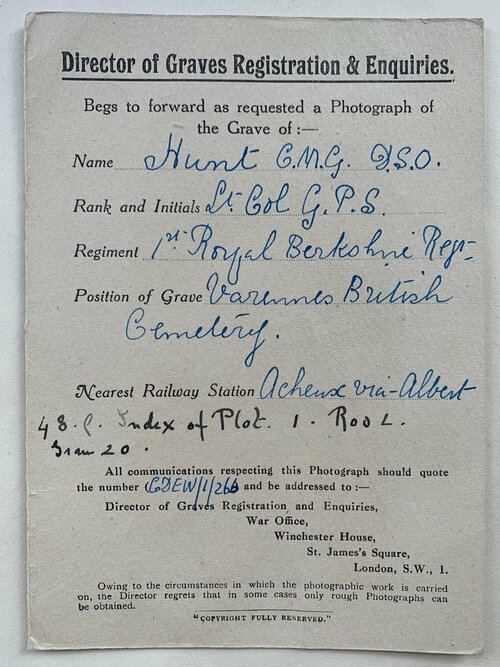 Director of Graves Registration & Enquiries.
Begs to forward as requested a Photograph of
the Grave of :—
Name Hunt C.M.G. D.S.O.
Rank and Initials Lt. Col G.P.S.
Regiment 1st Royal Berkshire Regt
Position of Grave Varennes British
Cemetery.
Nearest Railway Station Acheux via Albert
48. Index of Plot. 1. Row L.
Grave 20.
All communications respecting this Photograph should quote
the number CDEW/1/266 and be addressed to :—
Director of Graves Registration and Enquiries,
War Office,
Winchester House,
St. James's Square,
London, S.W., 1.
Owing to the circumstances in which the photographic work is carried
on, the Director regrets that in some cases only rough Photographs can
be obtained.
"COPYRIGHT FULLY RESERVED."